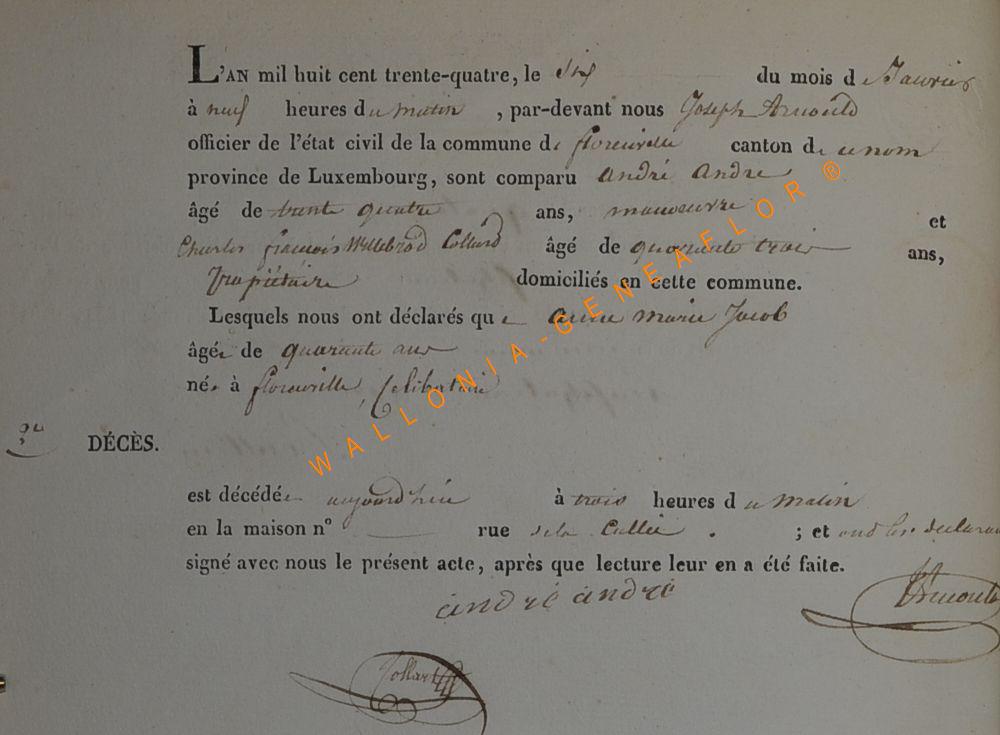 L'AN mil huit cent trente-quatre, le six du mois de Janvier
à neuf heures du matin, par-devant nous Joseph Arnould
officier de l'état civil de la commune de florenville canton de ce nom
province de Luxembourg, sont comparu André André
âgé de trente quatre ans, manoeuvre et
Charles françois Willebrod Collard âgé de quarante trois ans,
Propriétaire domiciliés en cette commune.
Lesquels nous ont déclarés que Anne marie Jacob
âgée de quarante ans
née à florenville, Celibataire
DÉCÈS.
est décédée aujourd'hui à trois heures du Matin
en la maison n° rue de la ; et ont les declarans
signé avec nous le présent acte, après que lecture leur en a été faite.
andré andré
Arnould
Collard
WALLONIA-GENEAFLOR®